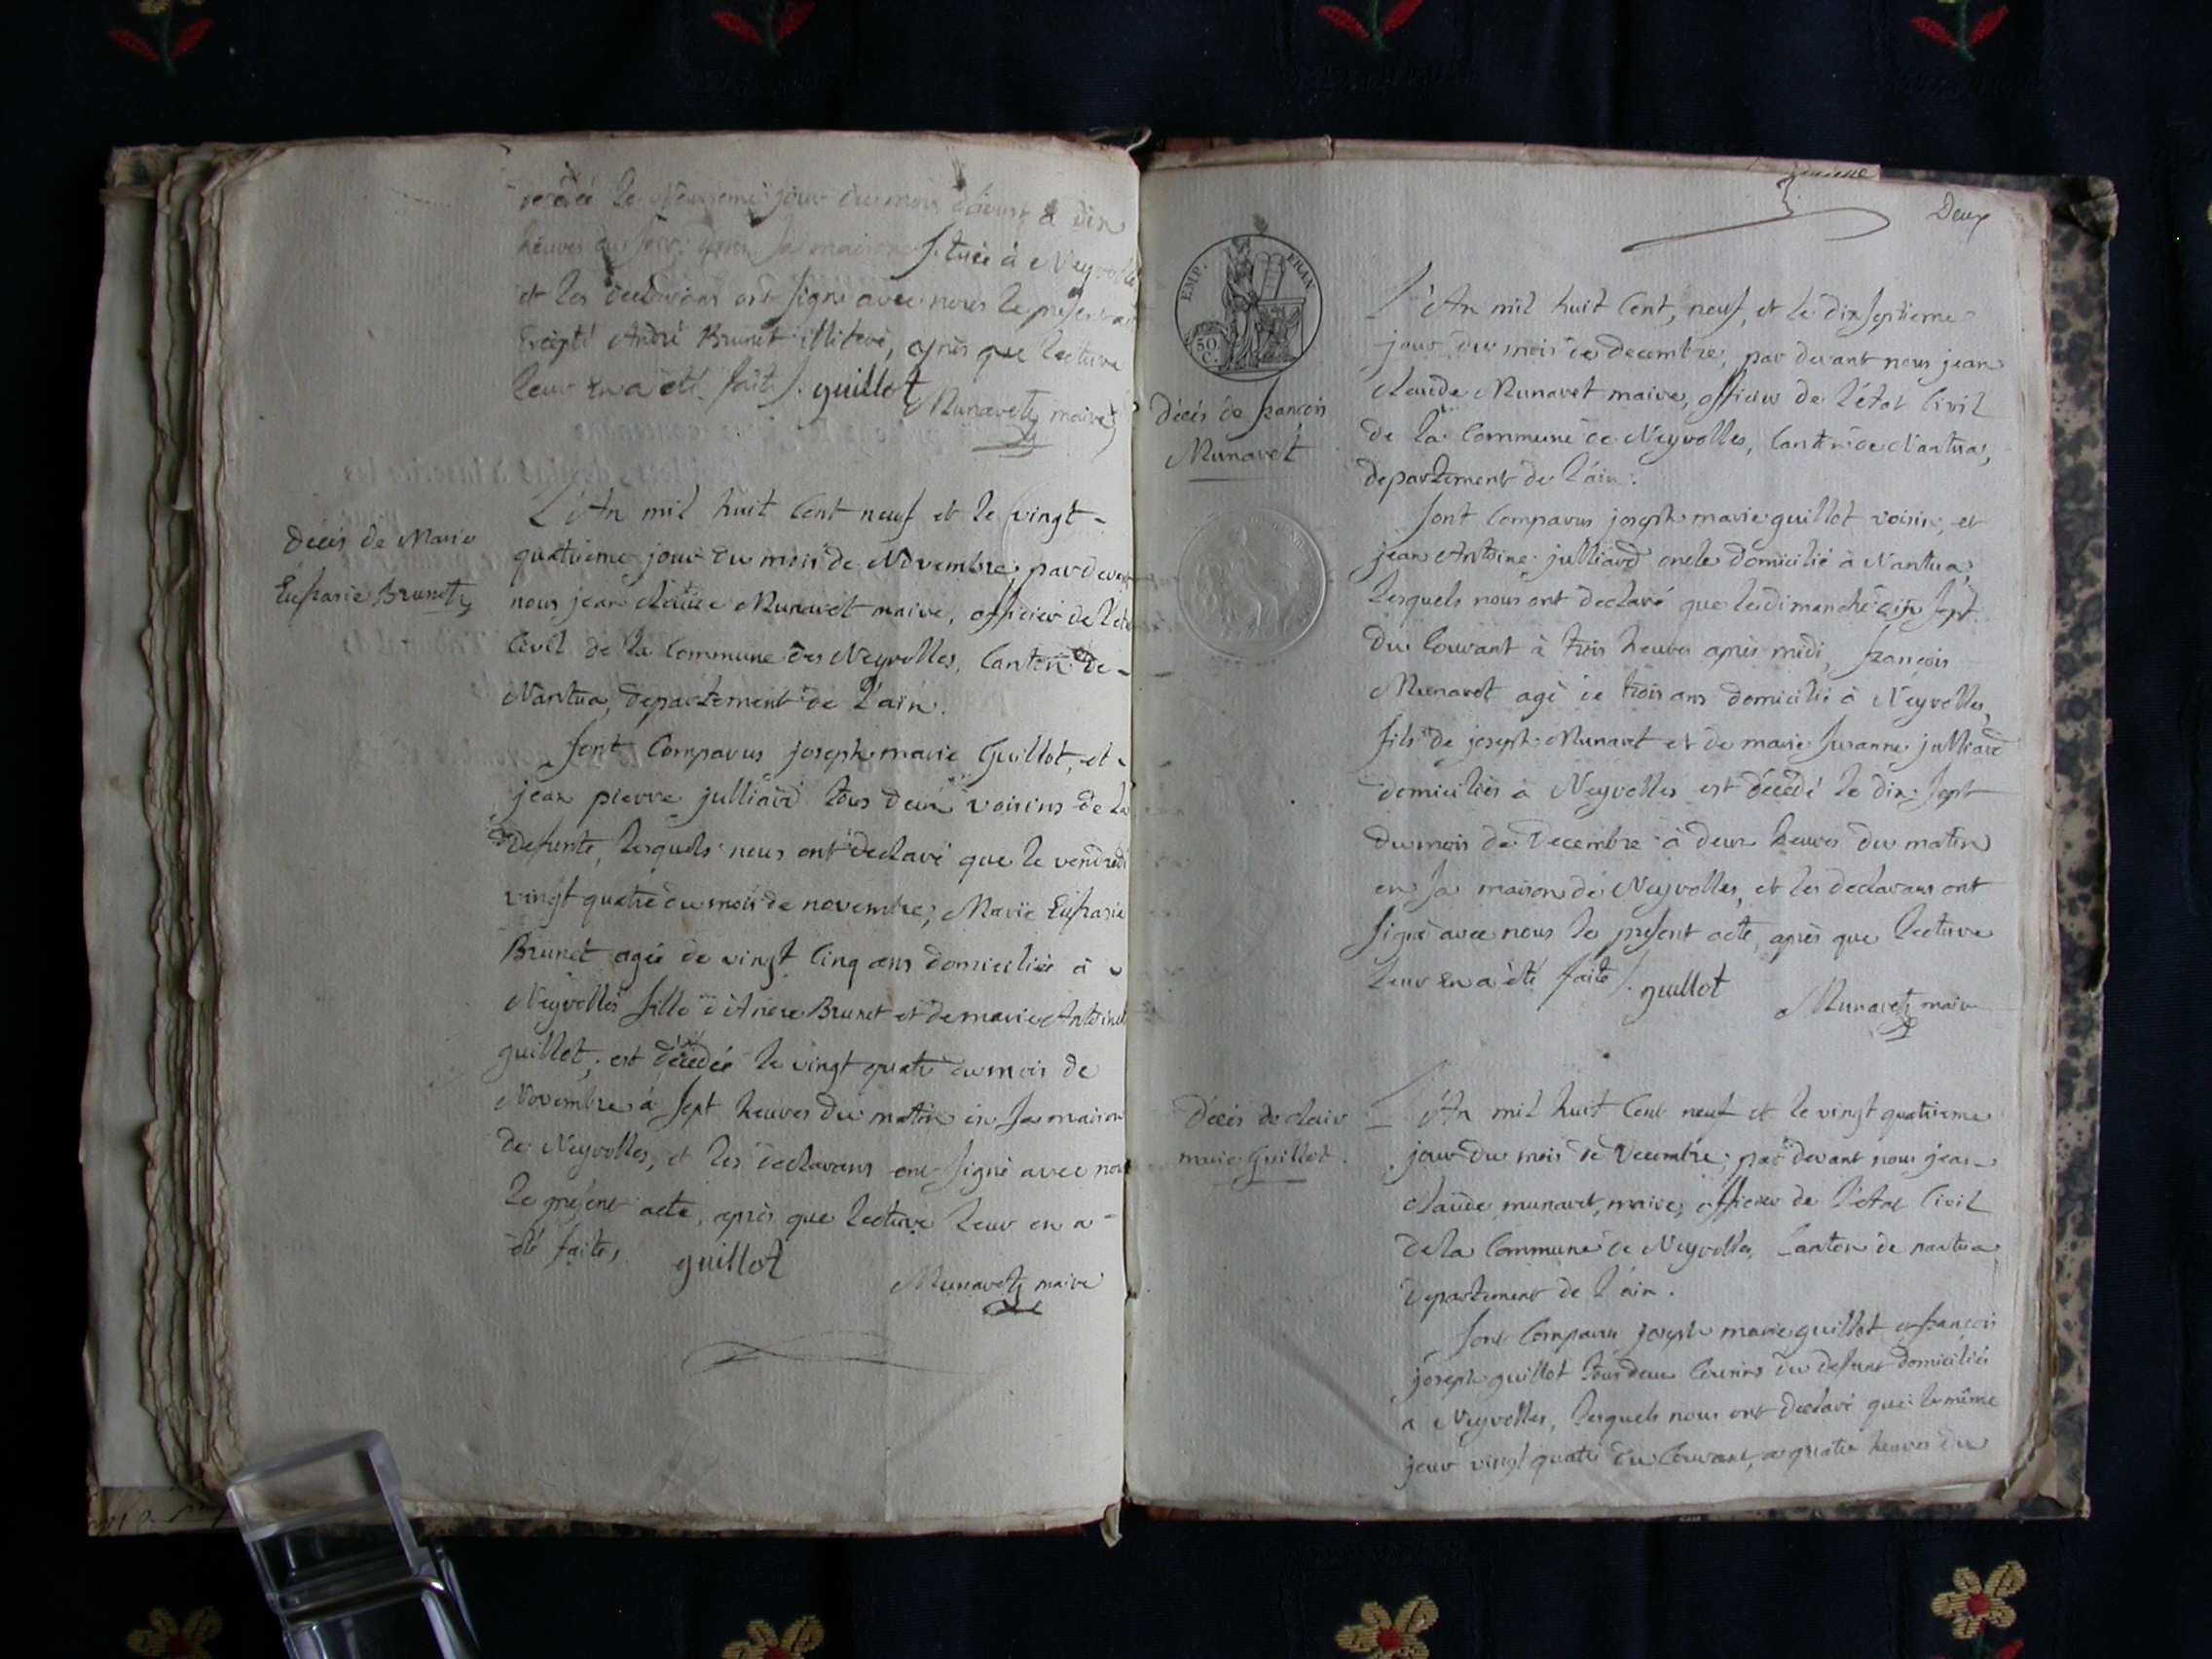 décédé le Neuvieme jour du mois d'aoust à dix
heures du soir, dans sa maison située à Neyrolles
et les declarans ont signé avec nous le présent acte
Excepté André Brunet illiteré, après que lecture
leur en a été faite. guillot
Munaret maire
Décès de Marie
Eufrasie Brunet
L'An mil huit Cent neuf et le vingt-
quatrieme jour du mois de Novembre, par devant
nous jean claude Munaret maire, officier de l'état
Civil de la Commune des Neyrolles, Canton de-
Nantua, departement de l'ain.
Sont Comparus joseph marie Guillot, et
jean pierre julliard tous deux voisins de la
defunte, lesquels nous ont declaré que le vendredi
vingt quatre du mois de novembre, Marie Eufrasie
Brunet agée de vingt Cinq ans domiciliée à
Neyrolles fille d'Andre Brunet et de marie Antoinette
guillot, est décédée le vingt quatre du mois de
Novembre à sept heures du matin en sa maison
de Neyrolles, et les declarans ont signé avec nous
le présent acte, après que lecture leur en a
été faite, guillot
Munaret maire
Deux
EMP. FRAN
50 C.
Décès de françois
Munaret
L'An mil huit Cent, neuf, et le dix septieme
jour du mois de decembre, par devant nous jean
claude Munaret maire, officier de l'état Civil
de la Commune de Neyrolles, Canton de Nantua,
departement de l'ain.
Sont Comparus joseph marie guillot voisin, et
jean Antoine julliard oncle domicilié à Nantua,
lesquels nous ont declaré que le dimanche dix sept
du Courant à trois heures après midi, françois
Munaret agé de trois ans domicilié à Neyrolles,
fils de joseph Munaret et de marie susanne julliard
domiciliés à Neyrolles est décédé le dix-sept
du mois de Decembre à deux heures du matin
en sa maison de Neyrolles, et les declarans ont
signé avec nous le present acte, après que lecture
leur en a été faite. guillot
Munaret maire
Décès de clair
marie Guillot.
L'An mil huit Cent neuf et le vingt quatrieme
jour du mois de Decembre, par devant nous jean
claude munaret, maire, officier de l'état Civil
de la Commune de Neyrolles, Canton de nantua
departement de l'ain.
Sont Comparus joseph marie guillot et françois
joseph guillot tous deux Cousins du defunt domiciliés
a Neyrolles, lesquels nous ont declaré que le même
jour vingt quatre du Courant, a quatre heures du